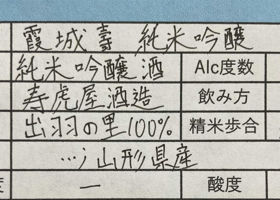 霞城寿 純米吟醸
純米吟醸酒 Alc度数
寿虎屋酒造 飲み方
出羽の里100% 精米歩合
…〉山形県産
度 — 酸度